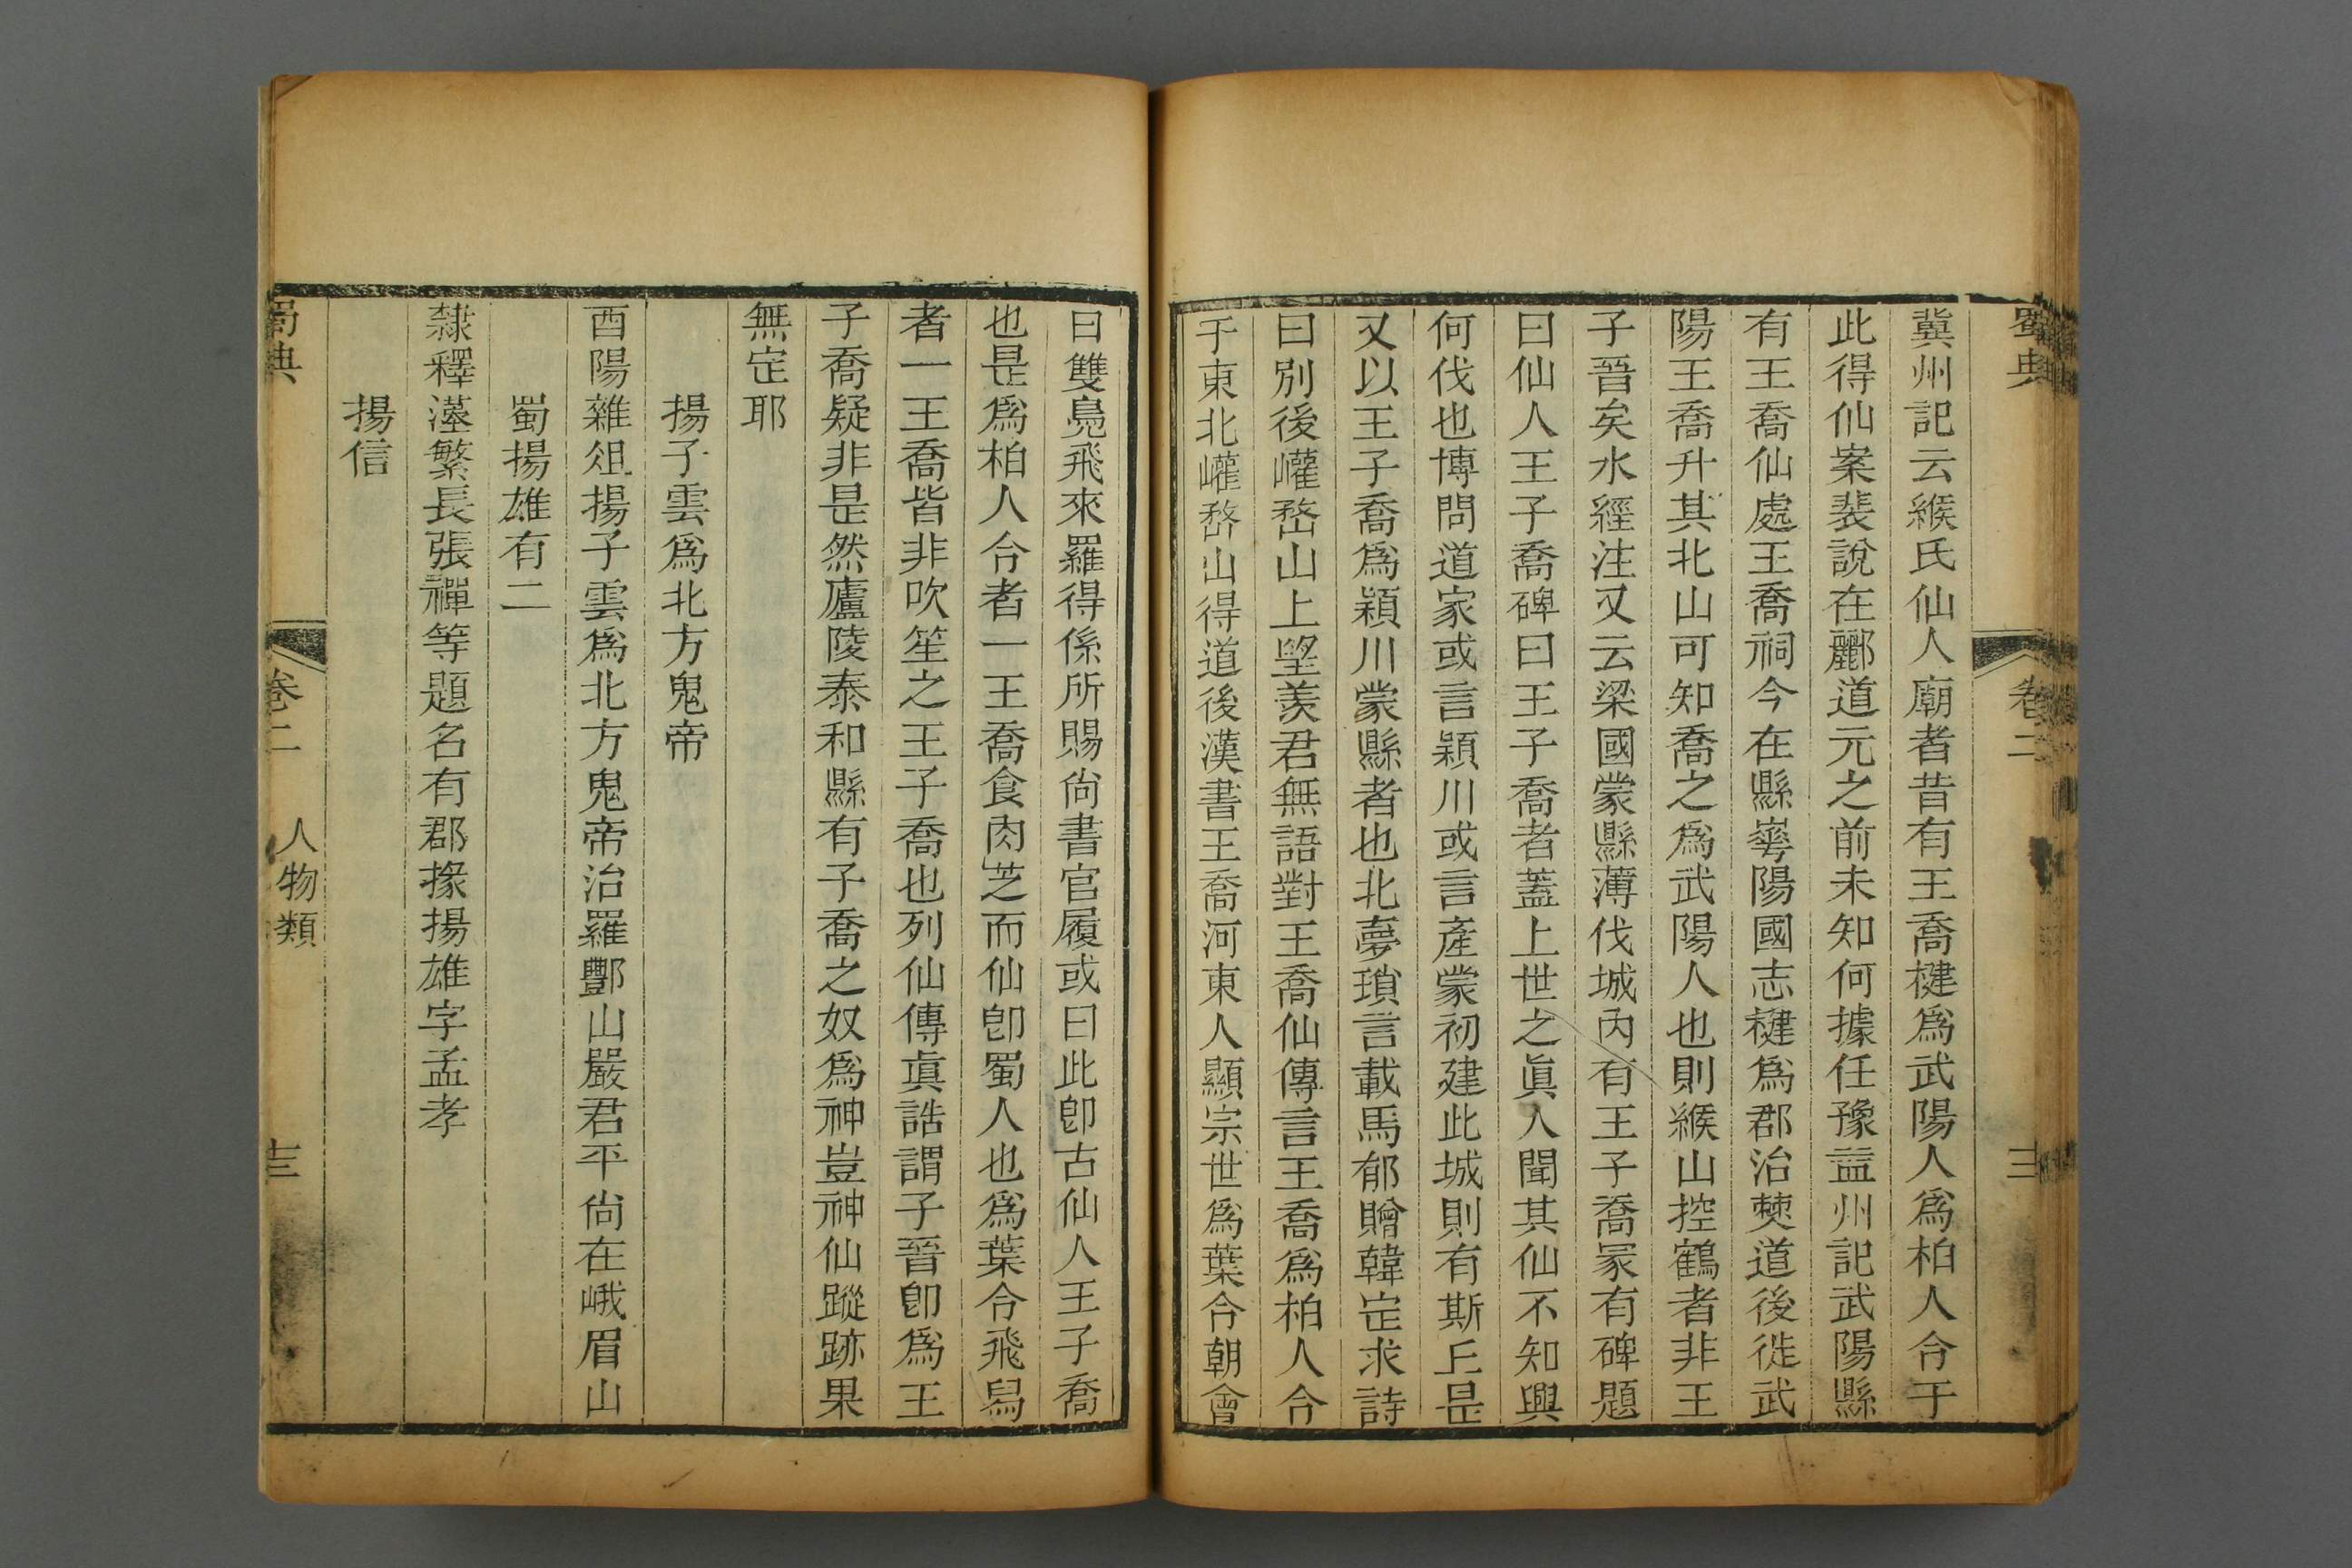 蜀典
卷二
冀州記云緱氏仙人廟者昔有王喬楗爲武陽人爲柏人令于
此得仙案裴說在酈道元之前未知何據任豫益州記武陽縣
有王喬仙處王喬祠今在縣蕐陽國志楗爲郡治僰道後徙武
陽王喬升其北山可知喬之爲武陽人也則緱山控鶴者非王
子晉矣水經注又云梁國蒙縣薄伐城內有王子喬冢有碑題
曰仙人王子喬碑曰王子喬者蓋上世之眞人聞其仙不知興
何伐也博問道家或言穎川或言產蒙初建此城則有斯丘昰
又以王子喬爲穎川蒙縣者也北夢瑣言載馬郁贈韓定求詩
曰別後巏嵍山上朢羨君無語對王喬仙傳言王喬爲柏人令
于東北巏嵍山得道後漢書王喬河東人顯宗世爲葉令朝會
曰雙鳧飛來羅得係所賜尙書官履或曰此卽古仙人王子喬
也昰爲柏人令者一王喬食肉芝而仙卽蜀人也爲葉令飛舄
者一王喬皆非吹笙之王子喬也列仙傳眞誥謂子晉卽爲王
子喬疑非昰然廬陵泰和縣有子喬之奴爲神豈神仙蹤跡果
無定耶
揚子雲爲北方鬼帝
酉陽雜俎揚子雲爲北方鬼帝治羅酆山嚴君平尙在峨眉山
蜀揚雄有二
隸釋蕅繁長張禪等題名有郡掾揚雄字孟孝
揚信
蜀典
卷二
人物類